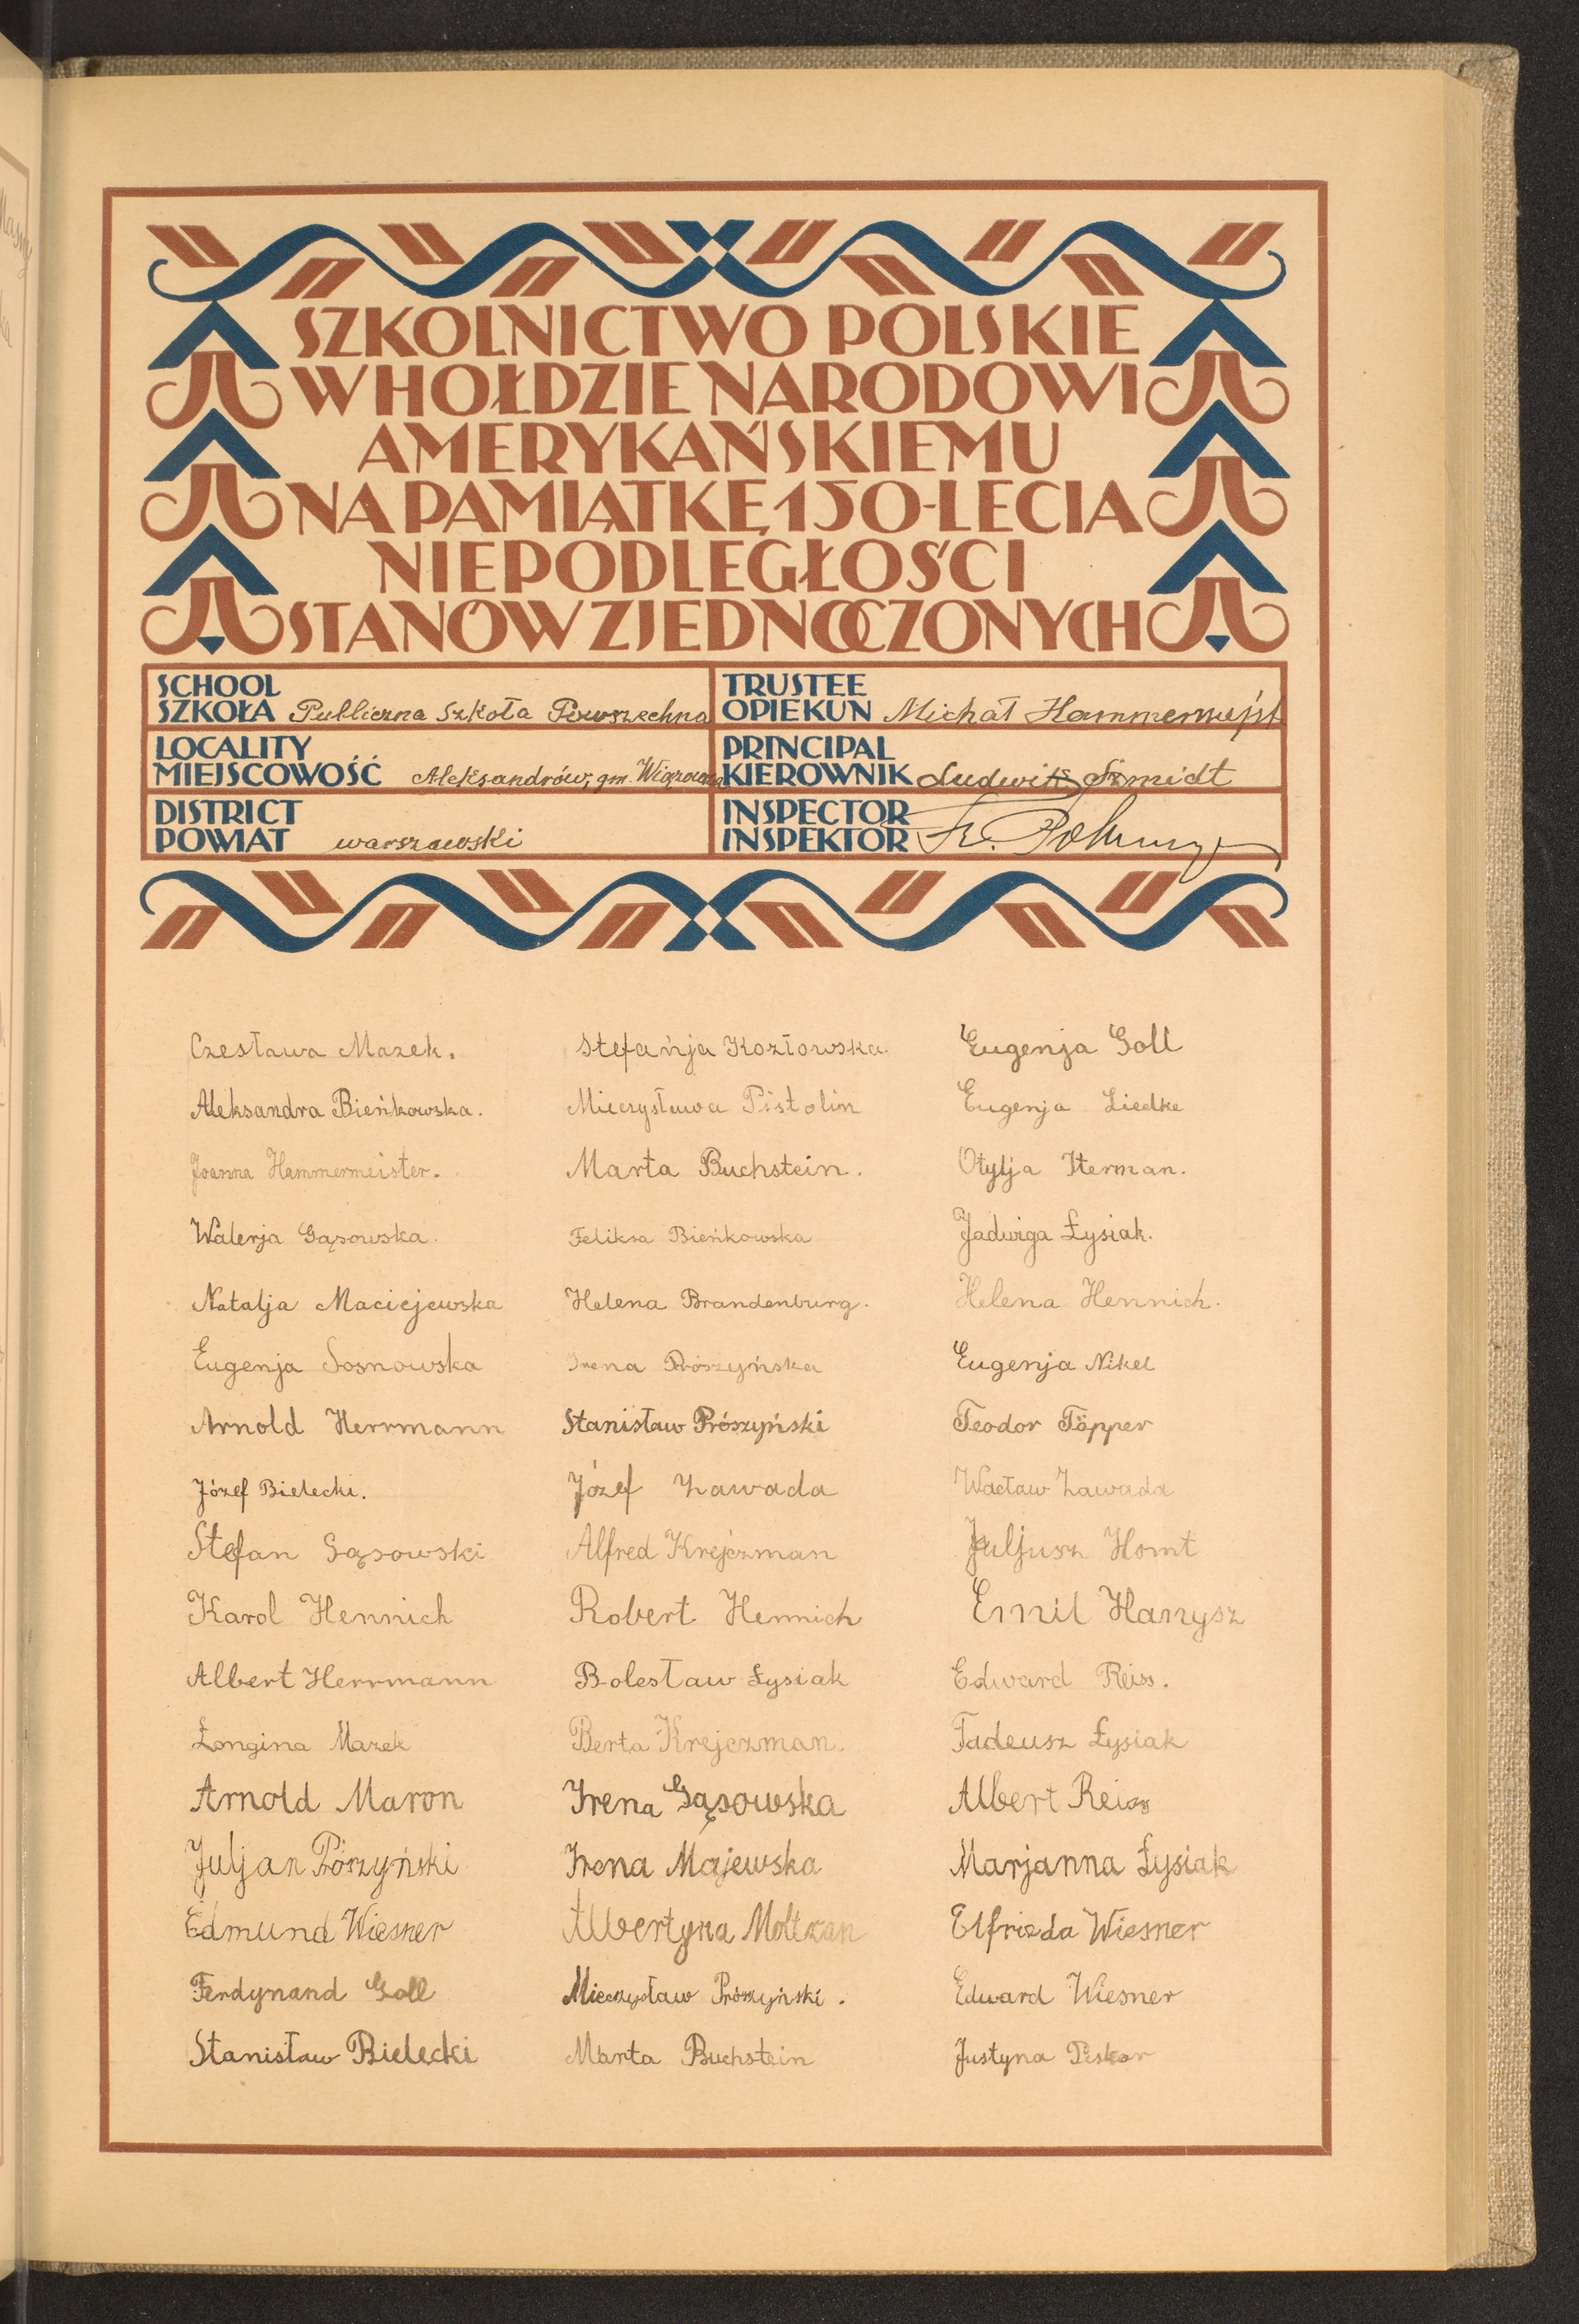 SZKOLNICTWO POLSKIE
W HOŁDZIE NARODOWI
AMERYKAŃSKIEMU
NA PAMIĄTKĘ 150-LECIA
NIEPODLEGŁOŚCI
STANÓW ZJEDNOCZONYCH
SCHOOL
SZKOŁA Publiczna Szkoła Powszechna
TRUSTEE
OPIEKUN Michał
LOCALITY
MIEJSCOWOŚĆ Aleksandrów, gm. Wiązowna
PRINCIPAL
KIEROWNIK Ludwik Szmidt
DISTRICT
POWIAT warszawski
INSPECTOR
INSPEKTOR Fr.
Czesława Mazek.
Aleksandra Bieńkowska.
Joanna Hammermeister.
Walerja Gąsowska.
Natalja Maciejewska
Eugenja Sosnowska
Arnold Herrmann
Józef Bielecki.
Stefan Gąsowski
Karol Hennich
Albert Herrmann
Longina Mazek
Arnold Maron
Juljan Prószyński
Edmund Wiesner
Ferdynand Goll
Stanisław Bielecki
Stefańja Kozłowska.
Mieczysława Pistolin
Marta Buchstein.
Feliksa Bieńkowska
Helena Brandenburg.
Irena Prószyńska
Stanisław Prószyński
Józef Zawada
Alfred Krejczman
Robert Hennich
Bolesław Łysiak
Berta Krejczman.
Irena Gąsowska
Irena Majewska
Albertyna Moltzan
Mieczysław Prószyński.
Marta Buchstein
Eugenja Goll
Eugenja Liedke
Otylja Herman.
Jadwiga Łysiak.
Helena Hennich.
Eugenja Nikel
Teodor Töpper
Wacław Zawada
Juljusz Homt
Emil Hanysz
Edward Reiss.
Tadeusz Łysiak
Albert Reiss
Marjanna Łysiak
Elfrieda Wiesner
Edward Wiesner
Justyna Piskor